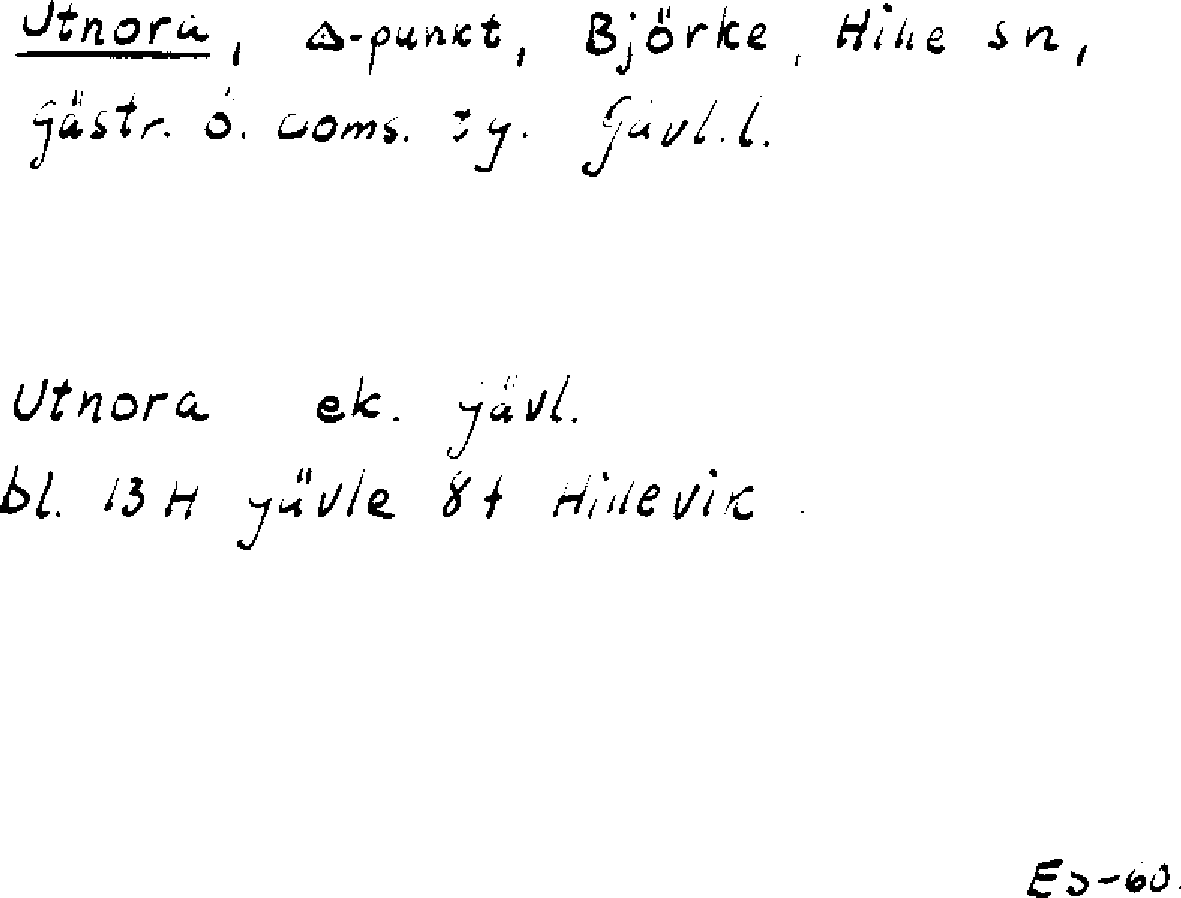 Utnora, △-punkt, Björke, Hille sn,
Gästr. ö. doms. tg. Gävl.l.
Utnora ek. Gävl.
bl. 13H Gävle 8f Hillevik.